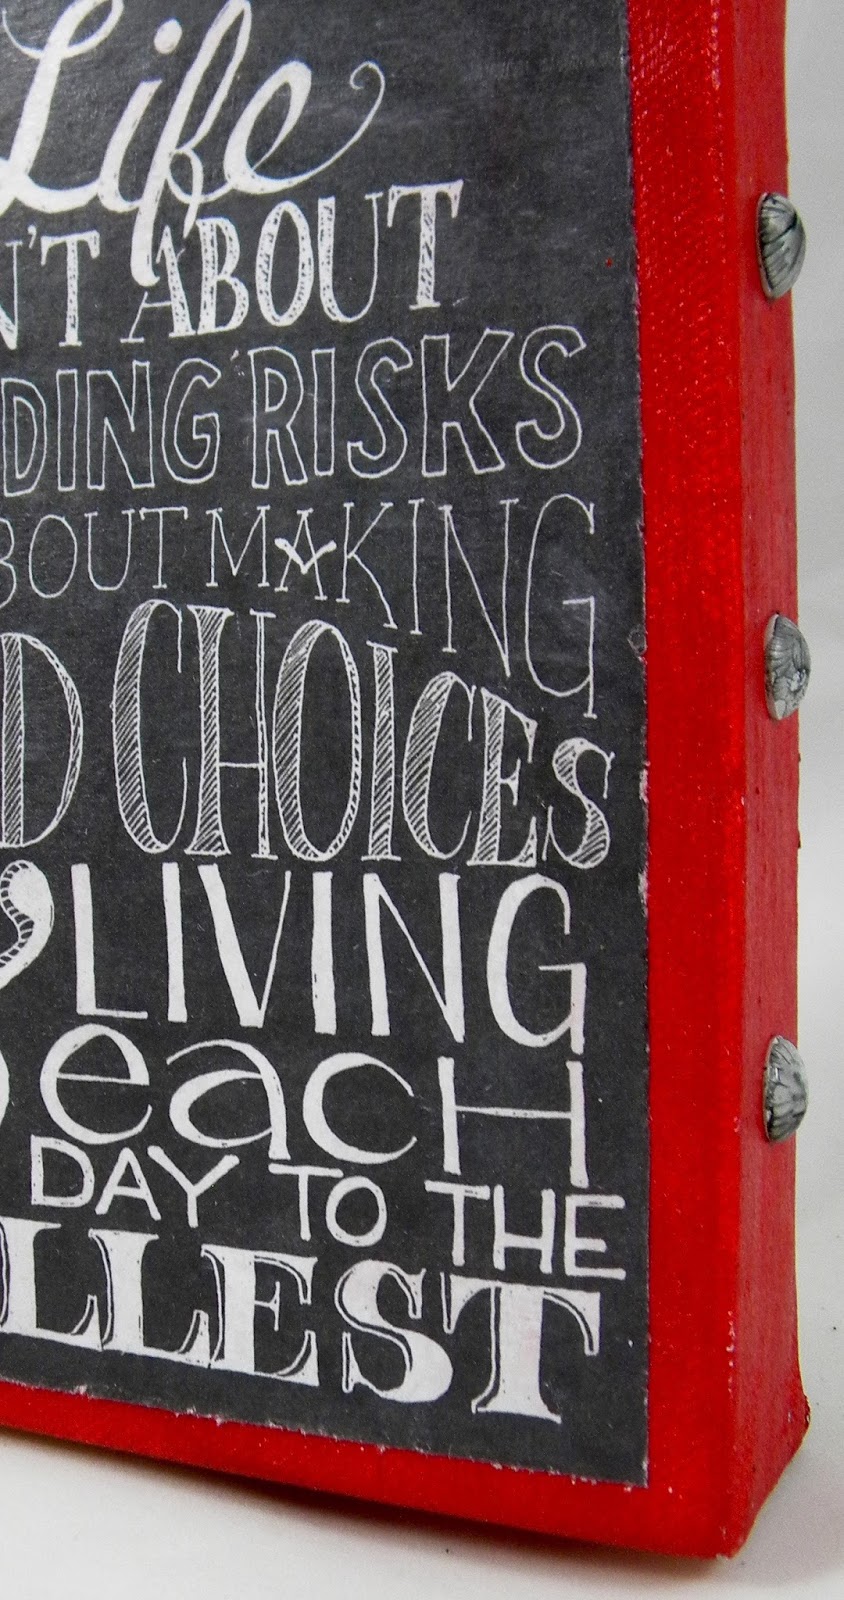 Life
N'T ABOUT
DING RISKS
BOUT MAKING
D CHOICES
& LIVING
each
DAY TO THE
LLEST